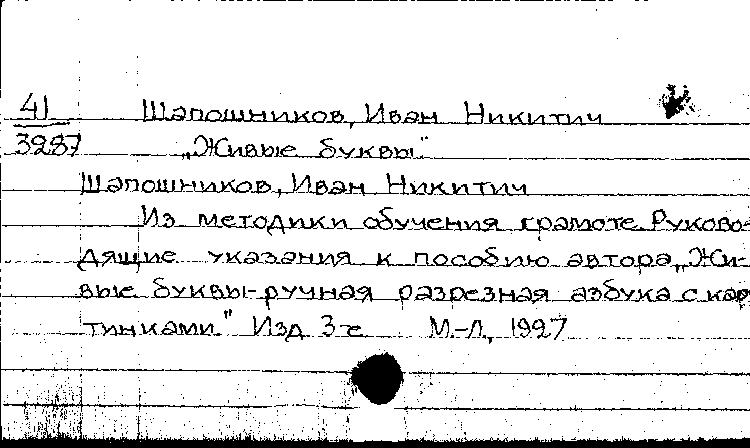 41 Шапошников, Иван Никитич
3287 „Живые буквы"
Шапошников, Иван Никитич
Из методики обучения грамоте. Руково-
дящие указания к пособию автора „Жи-
вые буквы-ручная разрезная азбука с кар
тинками." Изд 3-е М.-Л., 1927